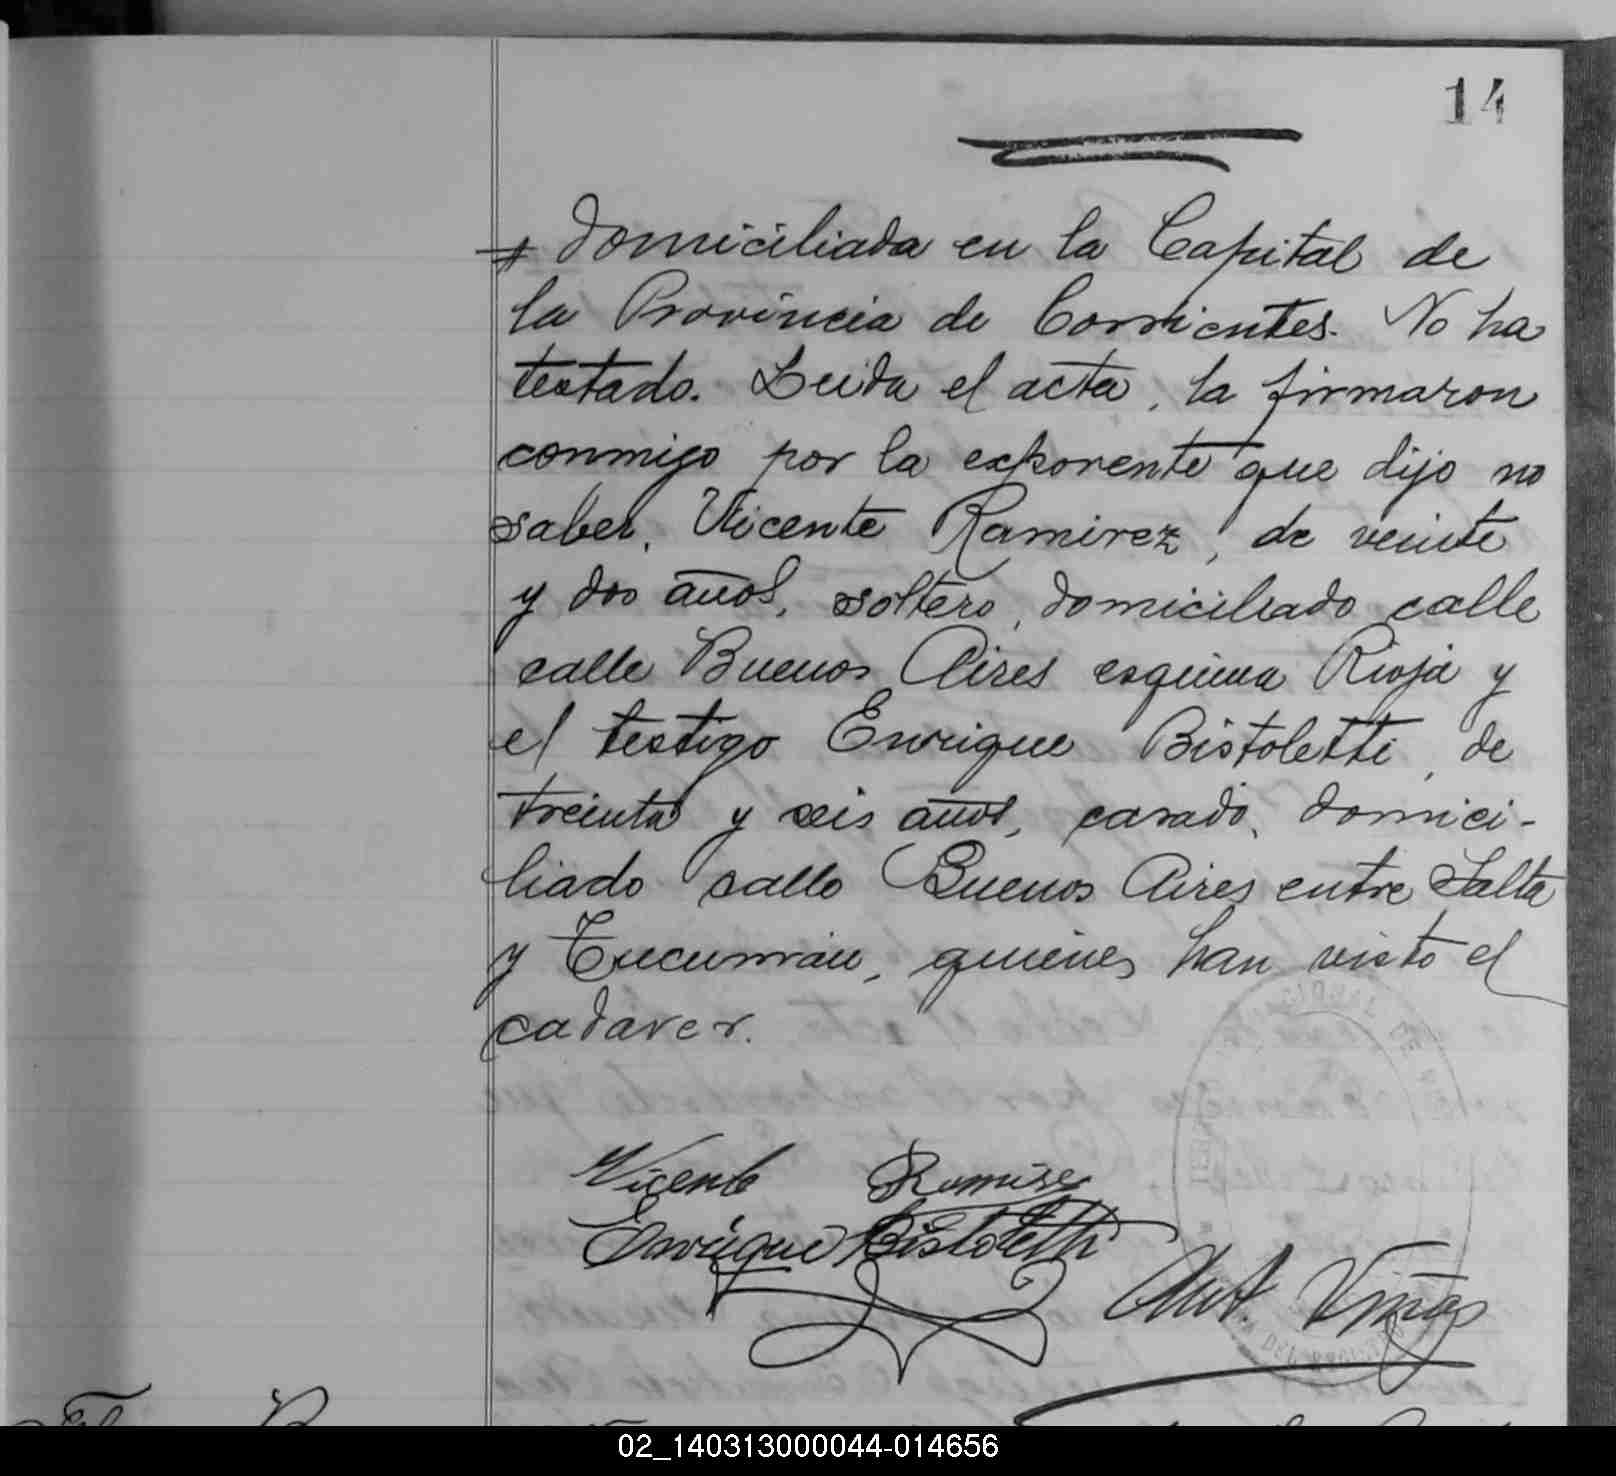 14
# domiciliada en la Capital de
la Provincia de Corrientes. No ha
testado. Leida el acta, la firmaron
conmigo por la exponente que dijo no
saber, Vicente Ramirez, de veinte
y dos años, soltero, domiciliado calle
calle Buenos Aires esquina Rioja y
el testigo Enrique Bistoletti, de
treinta y seis años, casado, domici-
liado calle Buenos Aires entre Salta
y Tucumán, quienes han visto el
cadaver.
Vicente Ramirez
Enrique Bistoletti
Ant. Viñas
02_140313000044-014656